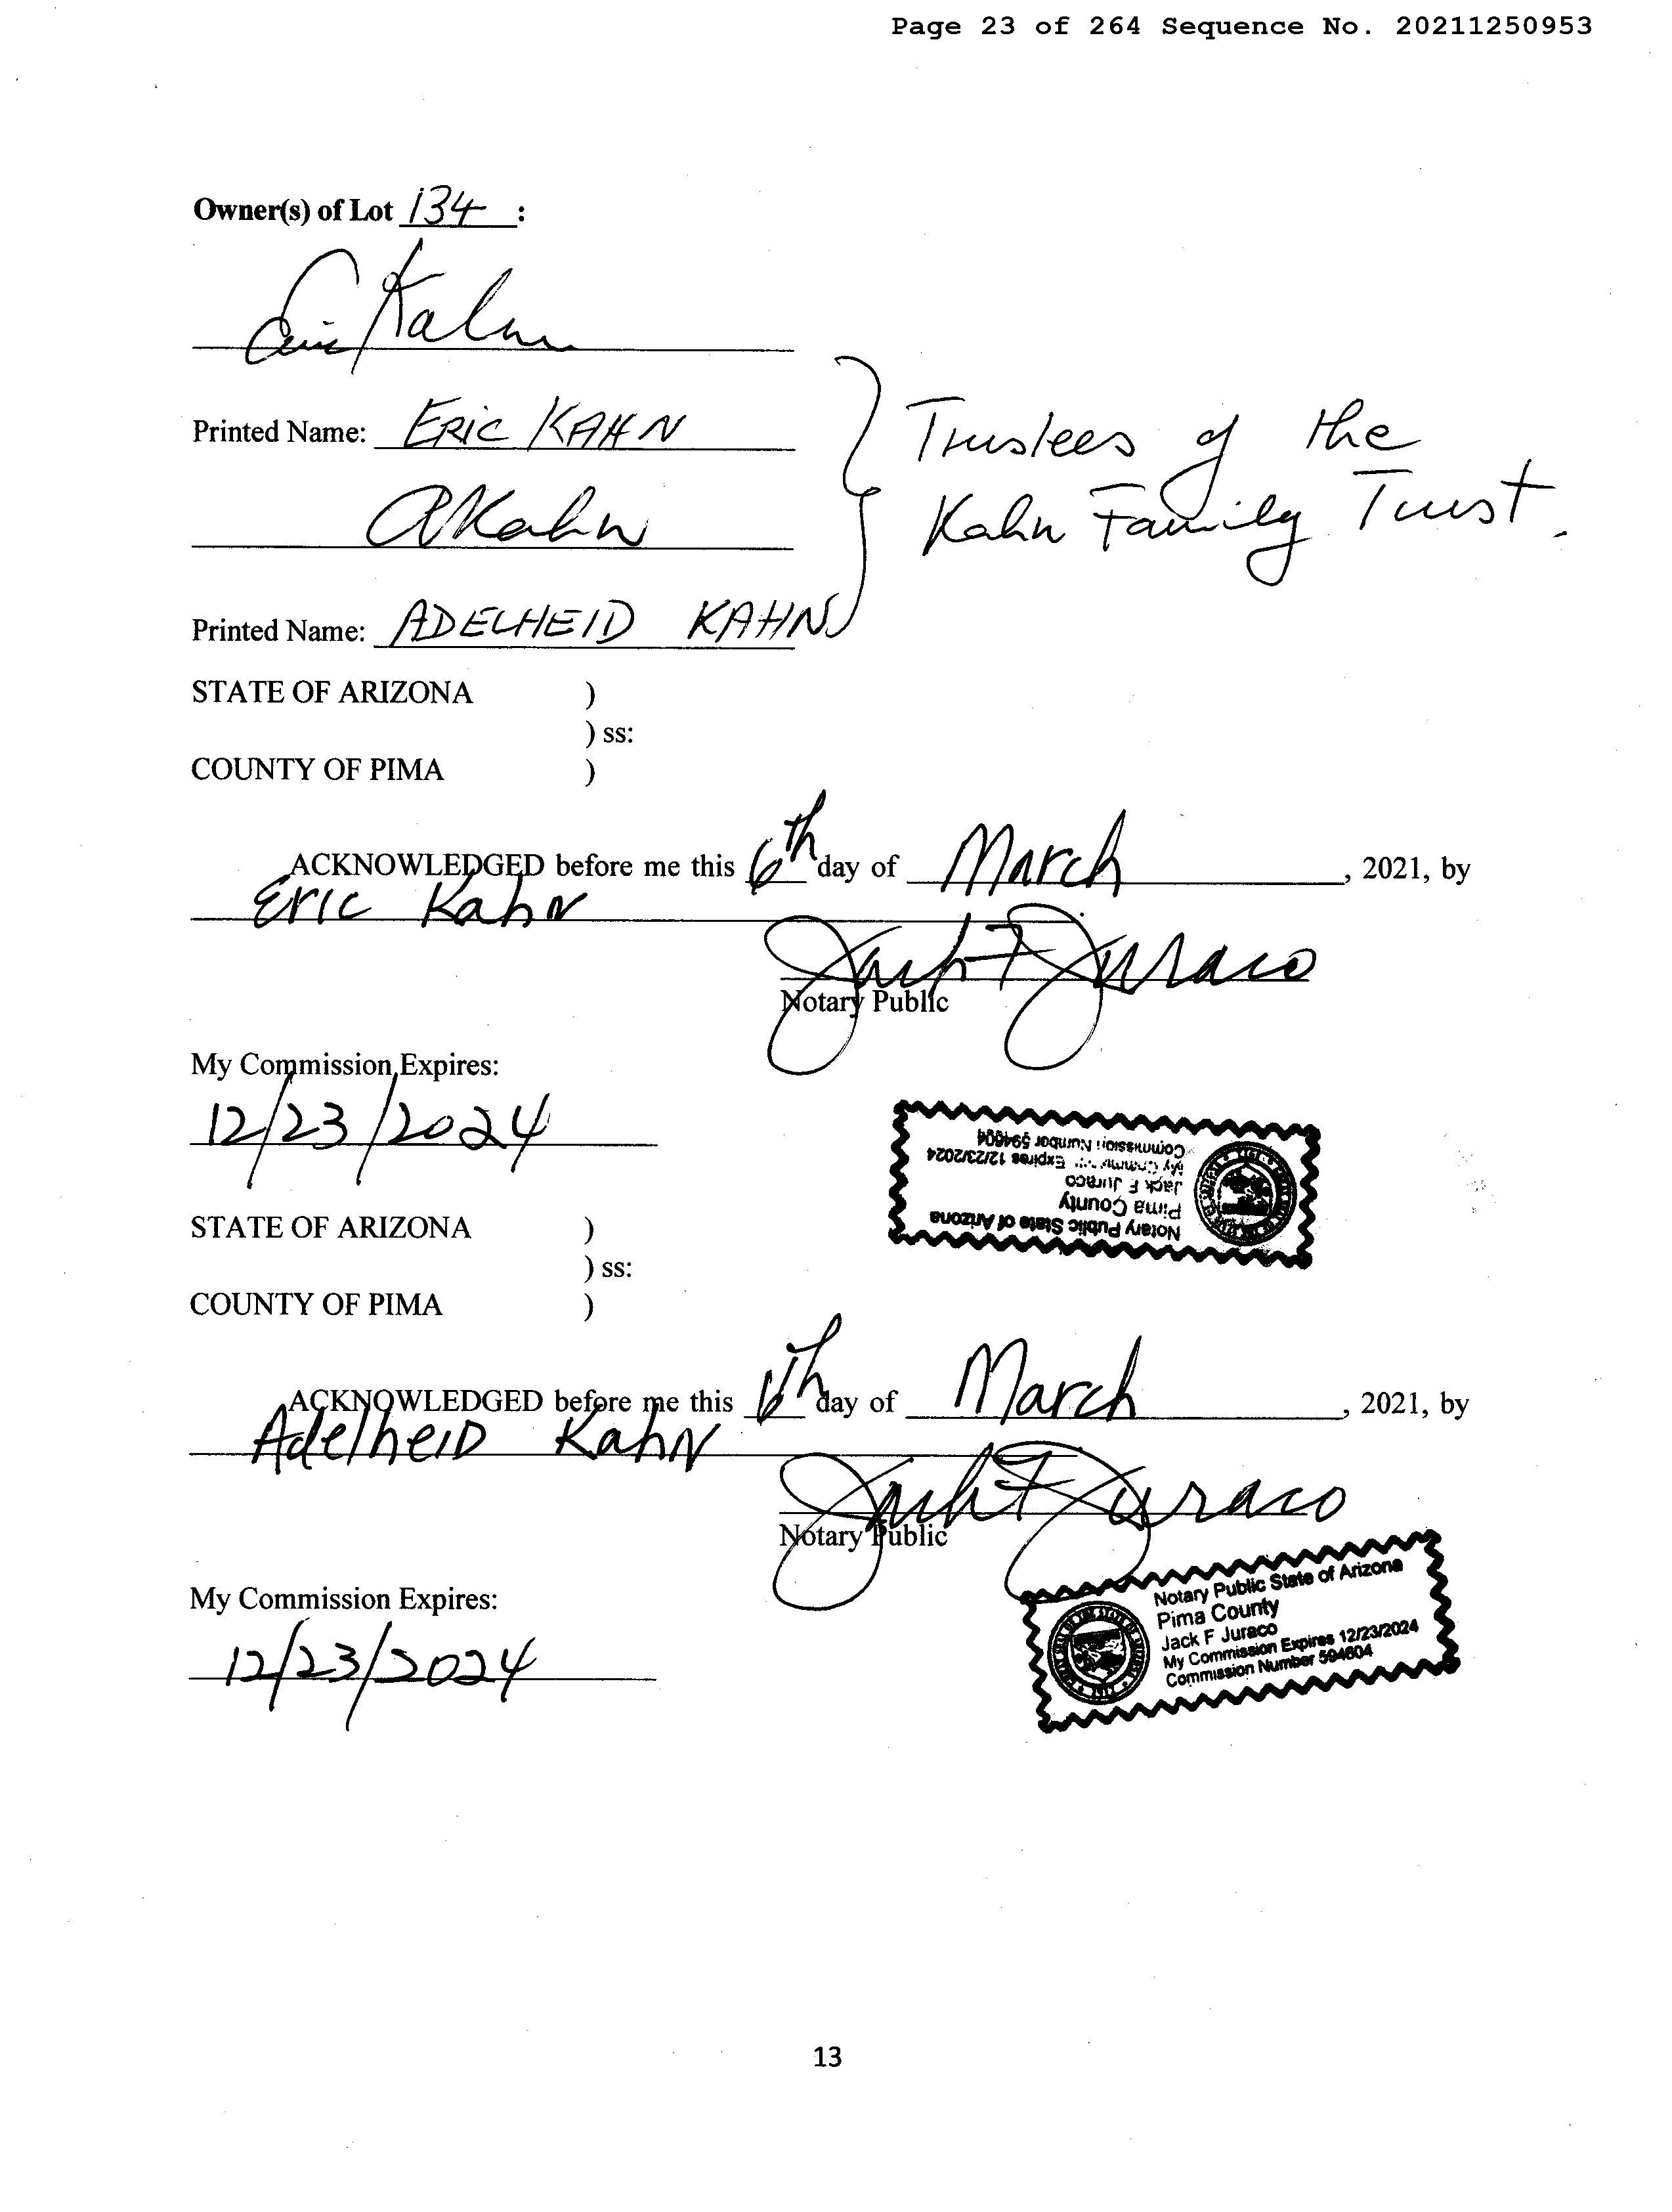 Page 23 of 264 Sequence No. 20211250953
Owner(s) of Lot 134 :
Eric Kahn
Printed Name: ERIC KAHN
AKahn
Printed Name: ADELHEID KAHN
Trustees of the
Kahn Family Trust.
STATE OF ARIZONA )
) ss:
COUNTY OF PIMA )
ACKNOWLEDGED before me this 6th day of March, 2021, by
Eric Kahn
Jack F Juraco
Notary Public
My Commission Expires:
12/23/2024
Notary Public State of Arizona
Pima County
Jack F Juraco
My Commission Expires 12/23/2024
Commission Number 594604
STATE OF ARIZONA )
) ss:
COUNTY OF PIMA )
ACKNOWLEDGED before me this 6th day of March, 2021, by
Adelheid Kahn
Jack F Juraco
Notary Public
My Commission Expires:
12/23/2024
Notary Public State of Arizona
Pima County
Jack F Juraco
My Commission Expires 12/23/2024
Commission Number 594604
13